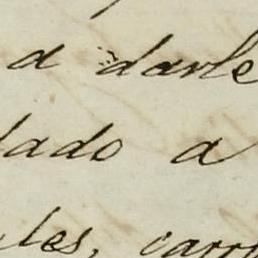 a darle
lado a
les, carr